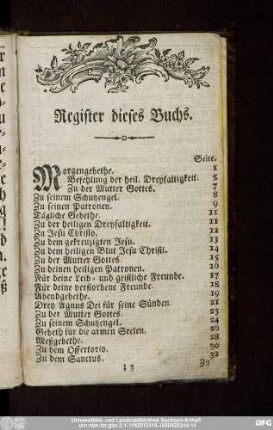 Register dieses Buchs.
Seite.
Morgengebethe. 1
Befehlung der heil. Dreyfaltigkeit. 5
Zu der Mutter Gottes. 7
Zu seinem Schutzengel. 8
Zu seinen Patronen. 9
Tägliche Gebethe. 11
Zu der heiligen Dreyfaltigkeit. 11
Zu Jesu Christo. 12
Zu dem gekreuzigten Jesu. 13
Zu dem heiligen Blut Jesu Christi. 14
Zu der Mutter Gottes 15
Zu deinen heiligen Patronen. 16
Für deine Leib- und geistliche Freunde. 17
Für deine verstorbene Freunde. 18
Abendgebethe. 19
Drey Agnus Dei für seine Sünden. 21
Zu der Mutter Gottes. 23
Zu seinem Schutzengel. 24
Gebeth für die armen Seelen. 26
Meßgebethe. 28
Zu dem Offertorio. 30
Zu dem Sanctus. 32
Zu
Universitäts- und Landesbibliothek Sachsen-Anhalt
DFG